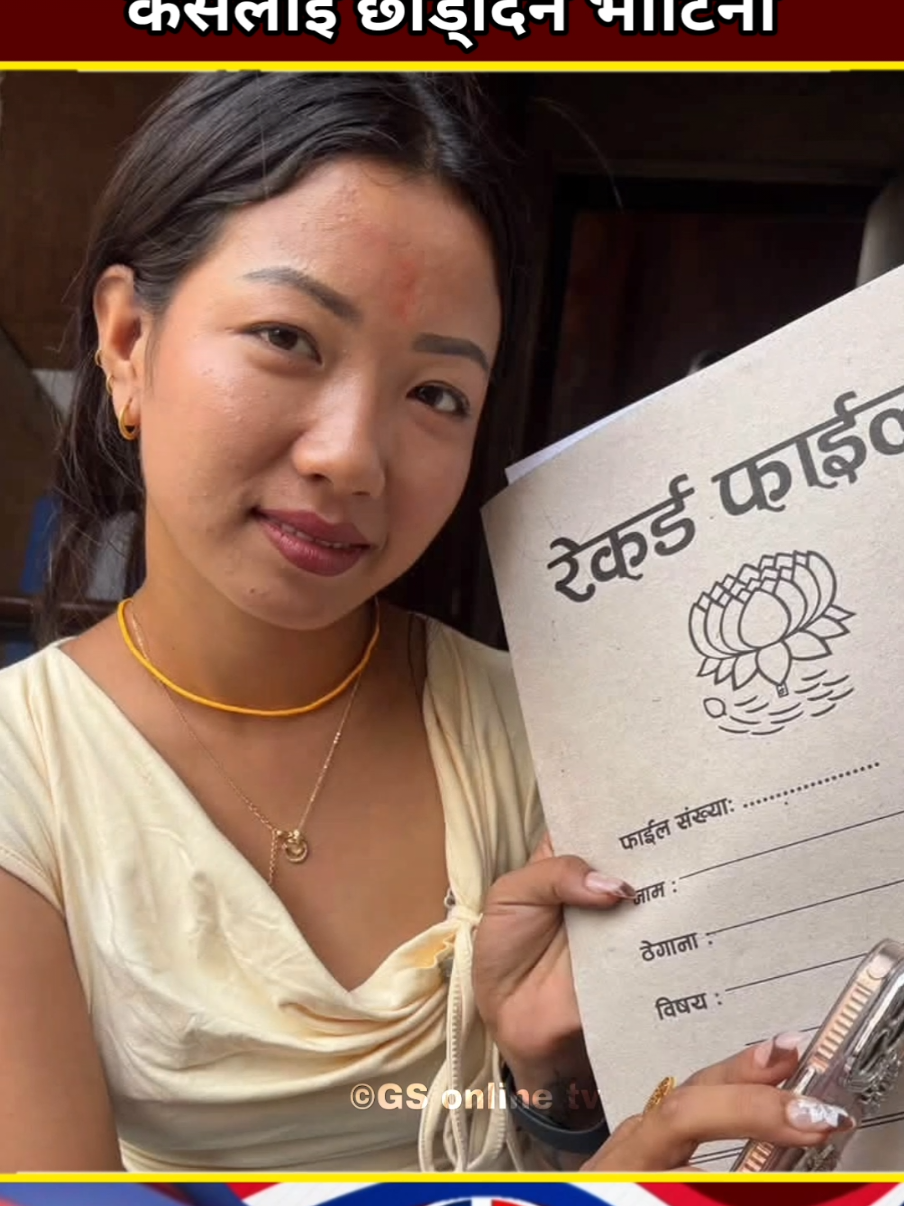 कसैलाई छोड्दिन भाटिनी
रेकर्ड फाईल
फाईल संख्या: ..........................
नाम :
ठेगाना :
विषय :
©GS online tv